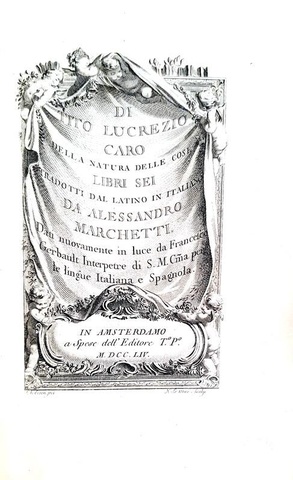 DI
TITO LUCREZIO
CARO
DELLA NATURA DELLE COSE
LIBRI SEI
TRADOTTI DAL LATINO IN ITALIANO
DA ALESSANDRO
MARCHETTI.
Dati nuovamente in luce da Francesco
Gerbault Interpetre di S. M. Cma per
le lingue Italiana e Spagnola.
IN AMSTERDAMO
a Spese dell' Editore
M. DCC. LIV.